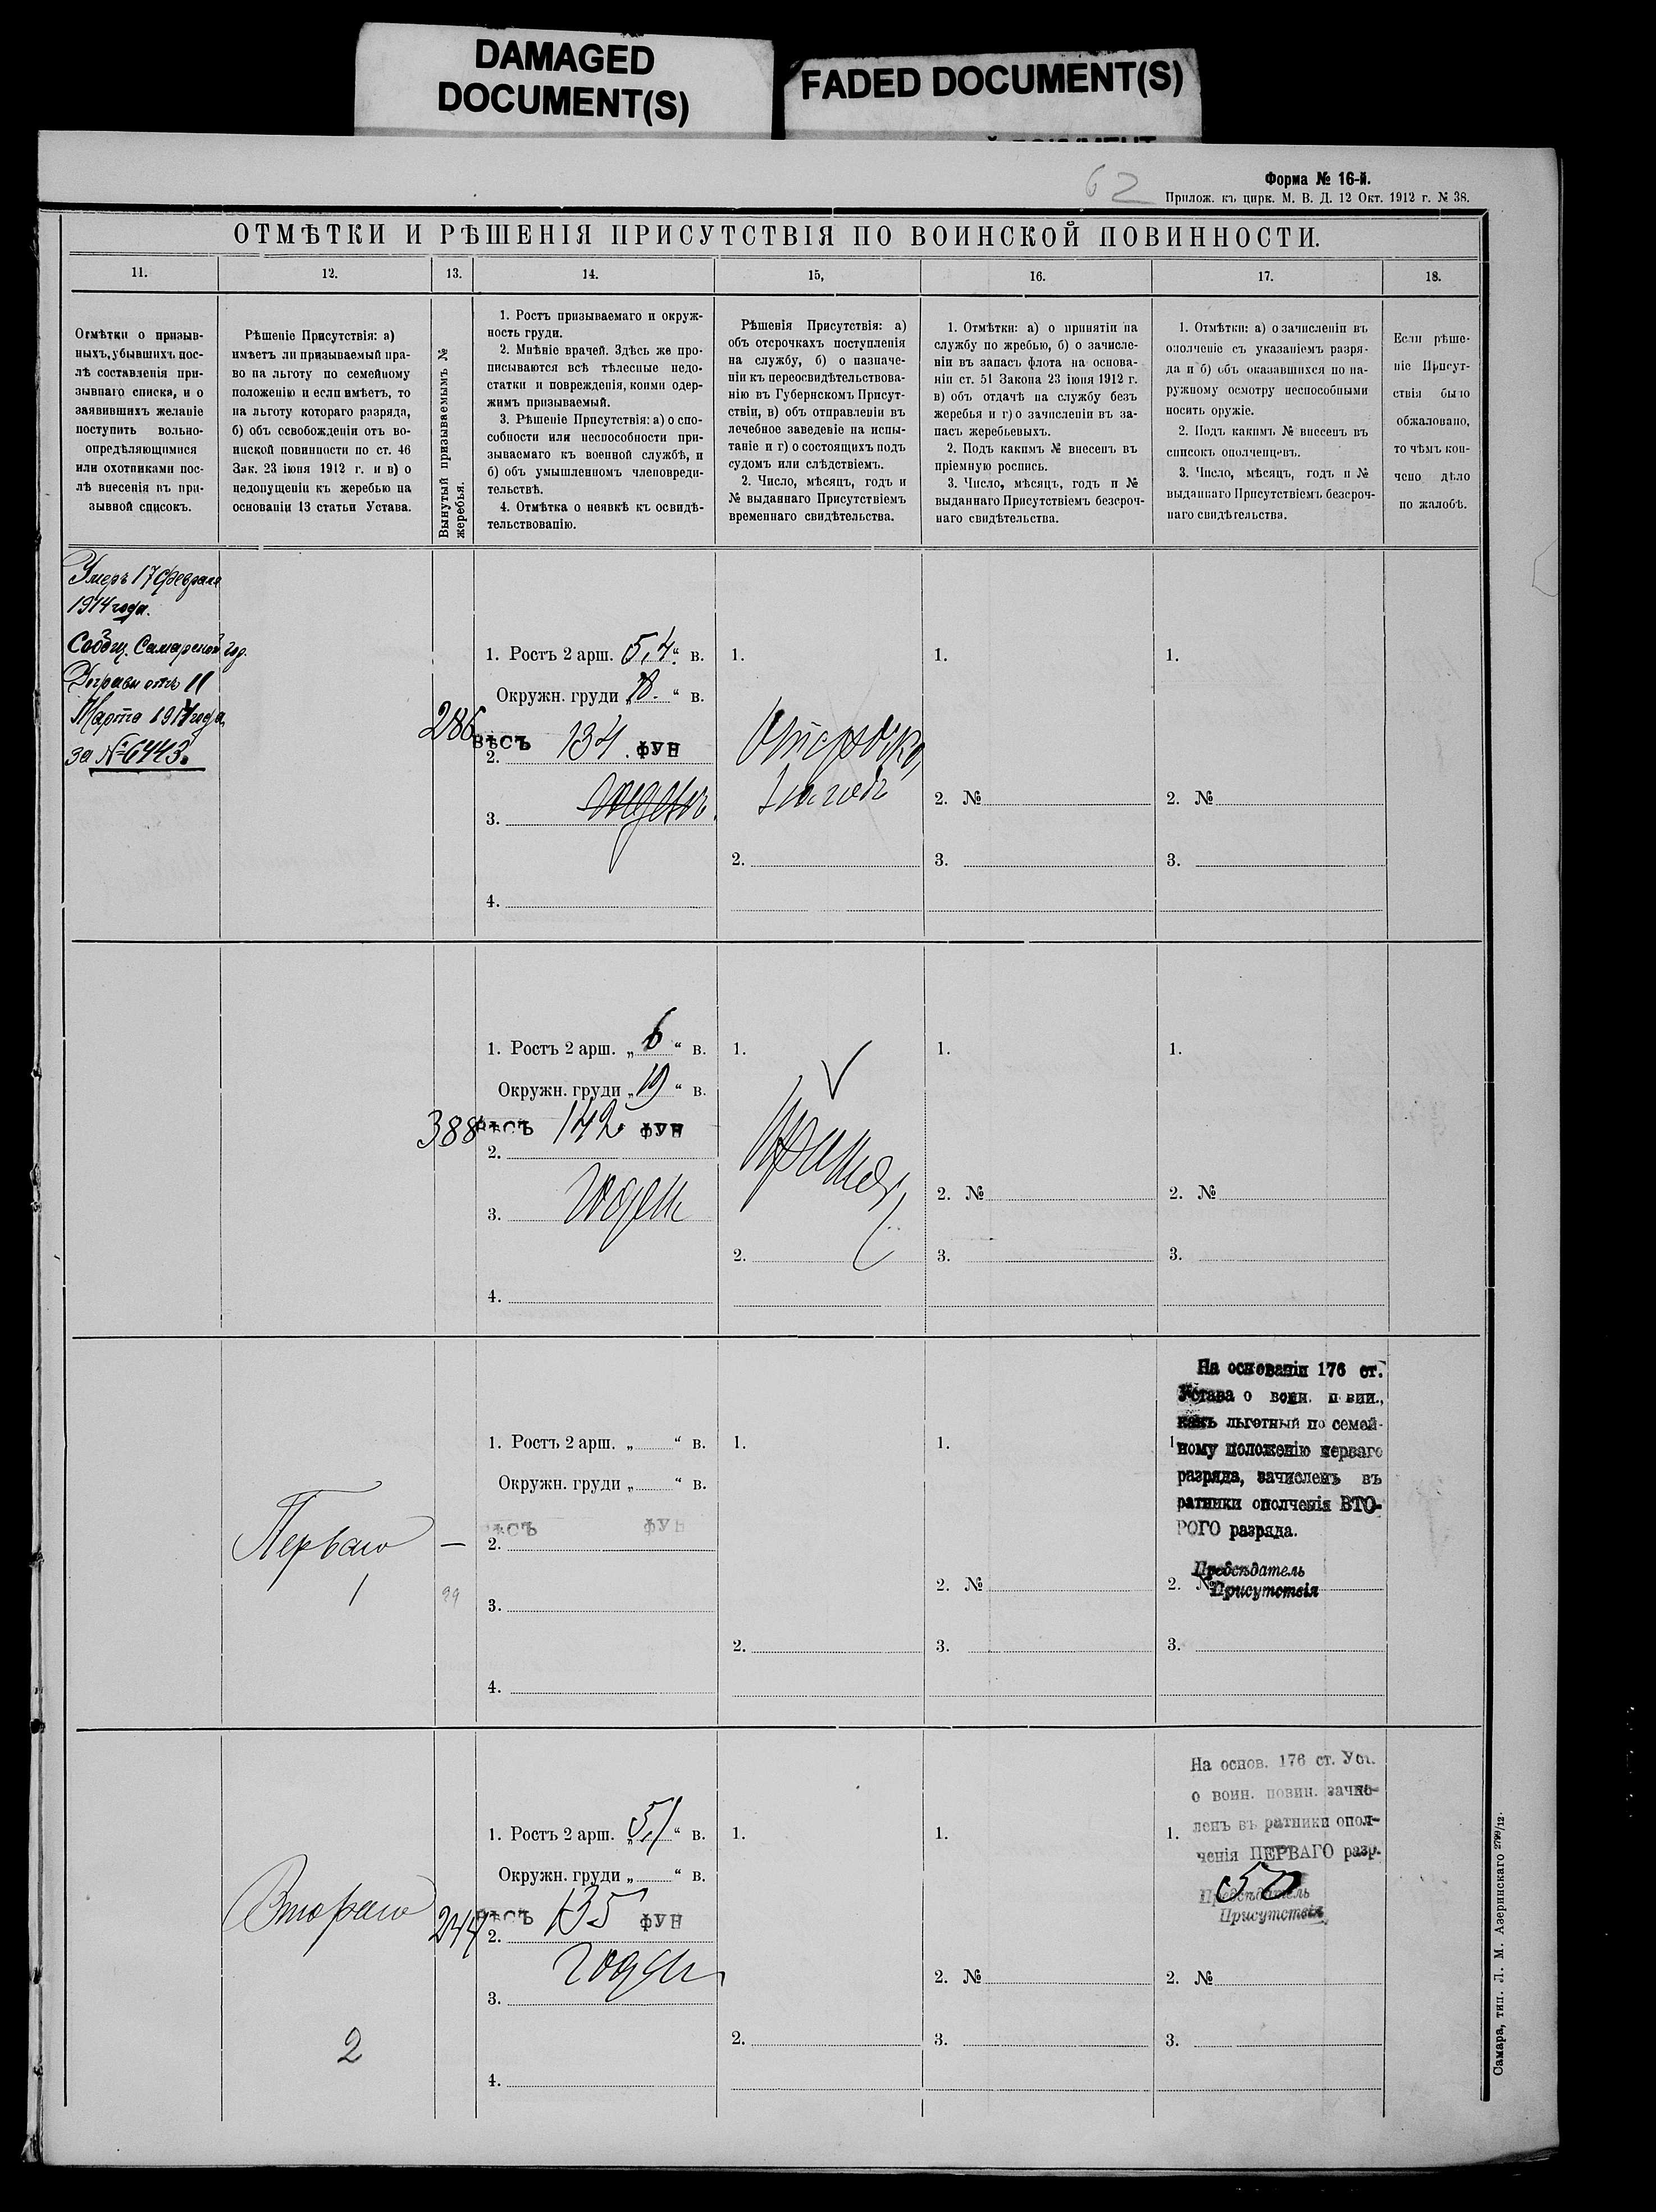 DAMAGED
DOCUMENT(S)
FADED DOCUMENT(S)
62
Форма № 16-й.
Прилож. къ цирк. М. В. Д. 12 Окт. 1912 г. № 38.
ОТМѢТКИ И РѢШЕНІЯ ПРИСУТСТВІЯ ПО ВОИНСКОЙ ПОВИННОСТИ.
11.
12.
13.
14.
15,
16.
17.
18.
Отмѣтки о призыв-
ныхъ, убывшихъ пос-
лѣ составленія при-
зывнаго списка, и о
заявившихъ желаніе
поступить вольно-
опредѣляющимися
или охотниками пос-
лѣ внесенія въ при-
зывной списокъ.
Рѣшеніе Присутствія: а)
имѣетъ ли призываемый пра-
во на льготу по семейному
положенію и если имѣетъ, то
на льготу котораго разряда,
б) объ освобожденіи отъ во-
инской повинности по ст. 46
Зак. 23 іюня 1912 г. и в) о
недопущеніи къ жеребью на
основаніи 13 статьи Устава.
Вынутый призываемымъ №
жеребья.
1. Ростъ призываемаго и окруж-
ность груди.
2. Мнѣніе врачей. Здѣсь же про-
писываются всѣ тѣлесные недо-
статки и поврежденія, коими одер-
жимъ призываемый.
3. Рѣшеніе Присутствія: а) о спо-
собности или неспособности при-
зываемаго къ военной службѣ, и
б) объ умышленномъ членовреди-
тельствѣ.
4. Отмѣтка о неявкѣ къ освидѣ-
тельствованію.
Рѣшенія Присутствія: а)
объ отсрочкахъ поступленія
на службу, б) о назначе-
ніи къ переосвидѣтельствова-
нію въ Губернскомъ Присут-
ствіи, в) объ отправленіи въ
лечебное заведеніе на испы-
таніе и г) о состоящихъ подъ
судомъ или слѣдствіемъ.
2. Число, мѣсяцъ, годъ и
№ выданнаго Присутствіемъ
временнаго свидѣтельства.
1. Отмѣтки: а) о принятіи на
службу по жребью, б) о зачисле-
ніи въ запасъ флота на основа-
ніи ст. 51 Закона 23 іюня 1912 г.
в) объ отдачѣ на службу безъ
жеребья и г) о зачисленіи въ за-
пасъ жеребьевыхъ.
2. Подъ какимъ № внесенъ въ
пріемную роспись.
3. Число, мѣсяцъ, годъ и №
выданнаго Присутствіемъ безсроч-
наго свидѣтельства.
1. Отмѣтки: а) о зачисленіи въ
ополченіе съ указаніемъ разря-
да и б) объ оказавшихся по на-
ружному осмотру неспособными
носить оружіе.
2. Подъ какимъ № внесенъ въ
списокъ ополченцевъ.
3. Число, мѣсяцъ, годъ и №
выданнаго Присутствіемъ безсроч-
наго свидѣтельства.
Если рѣше-
ніе Присут-
ствія было
обжаловано,
то чѣмъ кон-
чено дѣло
по жалобѣ.
Умеръ 17 февраля
1914 года.
Сообщ. Самарской гор.
Управы отъ 11
Марта 1914 года
за № 6443.
286
1. Ростъ 2 арш. 5,4 " в.
Окружн. груди „ 18. " в.
ВѢСЪ 134 ФУН
2.
3. годенъ
4.
1.
Отсрочка,
1 годъ
2.
1.
2. №
3.
1.
2. №
3.
388
1. Ростъ 2 арш. „ 6 " в.
Окружн. груди „ 19 " в.
ВѢСЪ 142 ФУН
2.
3. годен
4.
1.
Принять
2.
1.
2. №
3.
1.
2. №
3.
Перваго
1
—
99
1. Ростъ 2 арш. „ " в.
Окружн. груди „ " в.
ВѢСЪ ФУН
2.
3.
4.
1.
2.
1.
2. №
3.
На основаніи 176 ст.
Устава о воин. повин.,
какъ льготный по семей-
1. ному положенію перваго
разряда, зачисленъ въ
ратники ополченія ВТО-
РОГО разряда.
Предсѣдатель
2. № Присутствія
3.
Втораго
2
244
1. Ростъ 2 арш. „ 5,1 " в.
Окружн. груди „ " в.
ВѢСЪ 135 ФУН
2.
3. годен
4.
1.
2.
1.
2. №
3.
На основ. 176 ст. Уст.
о воин. повин. зачис-
1. ленъ въ ратники опол-
ченія ПЕРВАГО разр.
50
Предсѣдатель
Присутствія
2. №
3.
Самара, тип. Л. М. Азеринскаго 2799/12.